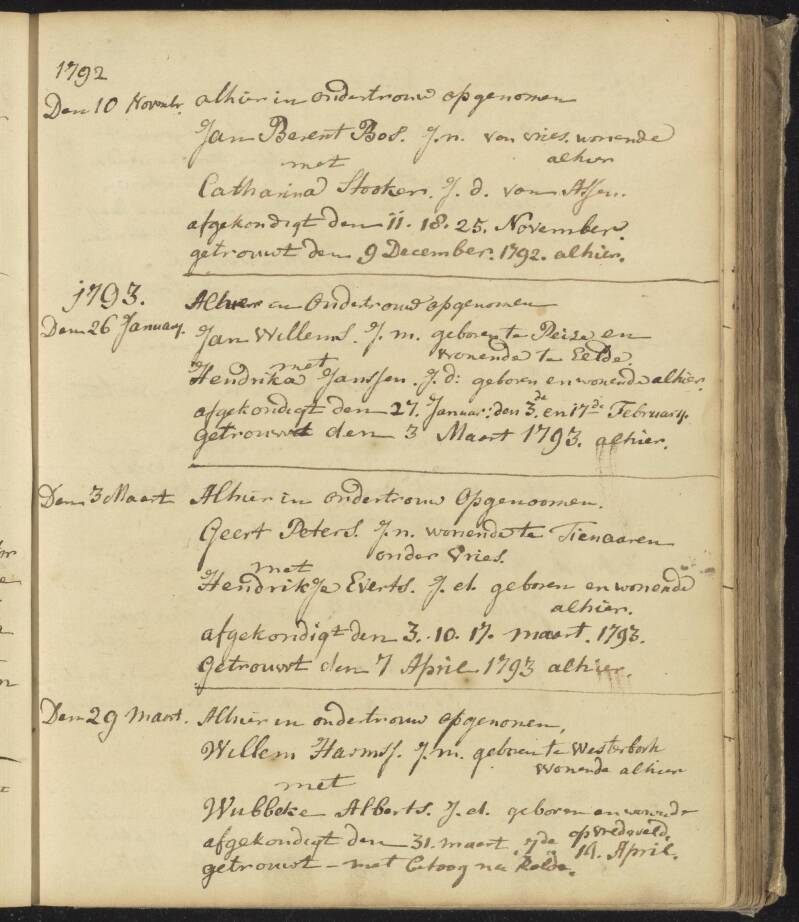 1792
Den 10 Novembr. alhier in ondertrouw opgenomen
Jan Berent Bos. J.n. van vries. wonende
alhier
met
Catharina Stooker. J. d. van Assen.
afgekondigt den 11. 18. 25. November.
getrouwt den 9 December. 1792. alhier.
1793. Alhier in Ondertrouw opgenomen
Den 26 January. Jan Willems. J. m. geboren te Peize en
wonende te Eelde
met
Hendrika Janssen. J. d: geboren en wonende alhier.
afgekondigt den 27. Januar: den 3.de en 17de February.
getrouwt den 3 Maart 1793. alhier.
Den 3 Maart Alhier in ondertrouw Opgenoomen.
Geert Peters. J.n. wonende te Tienaaren
onder Vries.
met
Hendrikje Everts. J. d. geboren en wonende
alhier.
afgekondigt den 3. 10. 17. maart. 1793.
Getrouwt den 7 April 1793 alhier.
Den 29 maart. Alhier in ondertrouw opgenonen,
Willem Harmss. J. m. geboren te Westerbork
wonende alhier
met
Wubbeke Alberts. J. d. geboren en wonende
op vredeveld.
afgekondigt den 31. maart. 7de 14. April.
getrouwt - met betoog na Rolde.